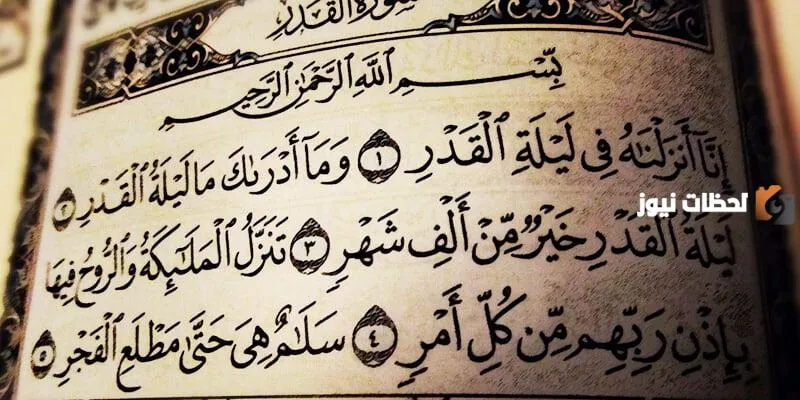 سورة القدر
بِسْمِ ٱللَّهِ ٱلرَّحْمَٰنِ ٱلرَّحِيمِ
إِنَّآ أَنزَلْنَٰهُ فِى لَيْلَةِ ٱلْقَدْرِ ١ وَمَآ أَدْرَىٰكَ مَا لَيْلَةُ ٱلْقَدْرِ ٢
لَيْلَةُ ٱلْقَدْرِ خَيْرٌ مِّنْ أَلْفِ شَهْرٍ ٣ تَنَزَّلُ ٱلْمَلَٰٓئِكَةُ وَٱلرُّوحُ فِيهَا
بِإِذْنِ رَبِّهِم مِّن كُلِّ أَمْرٍ ٤ سَلَٰمٌ هِىَ حَتَّىٰ مَطْلَعِ ٱلْفَجْرِ ٥
لحظات نيوز